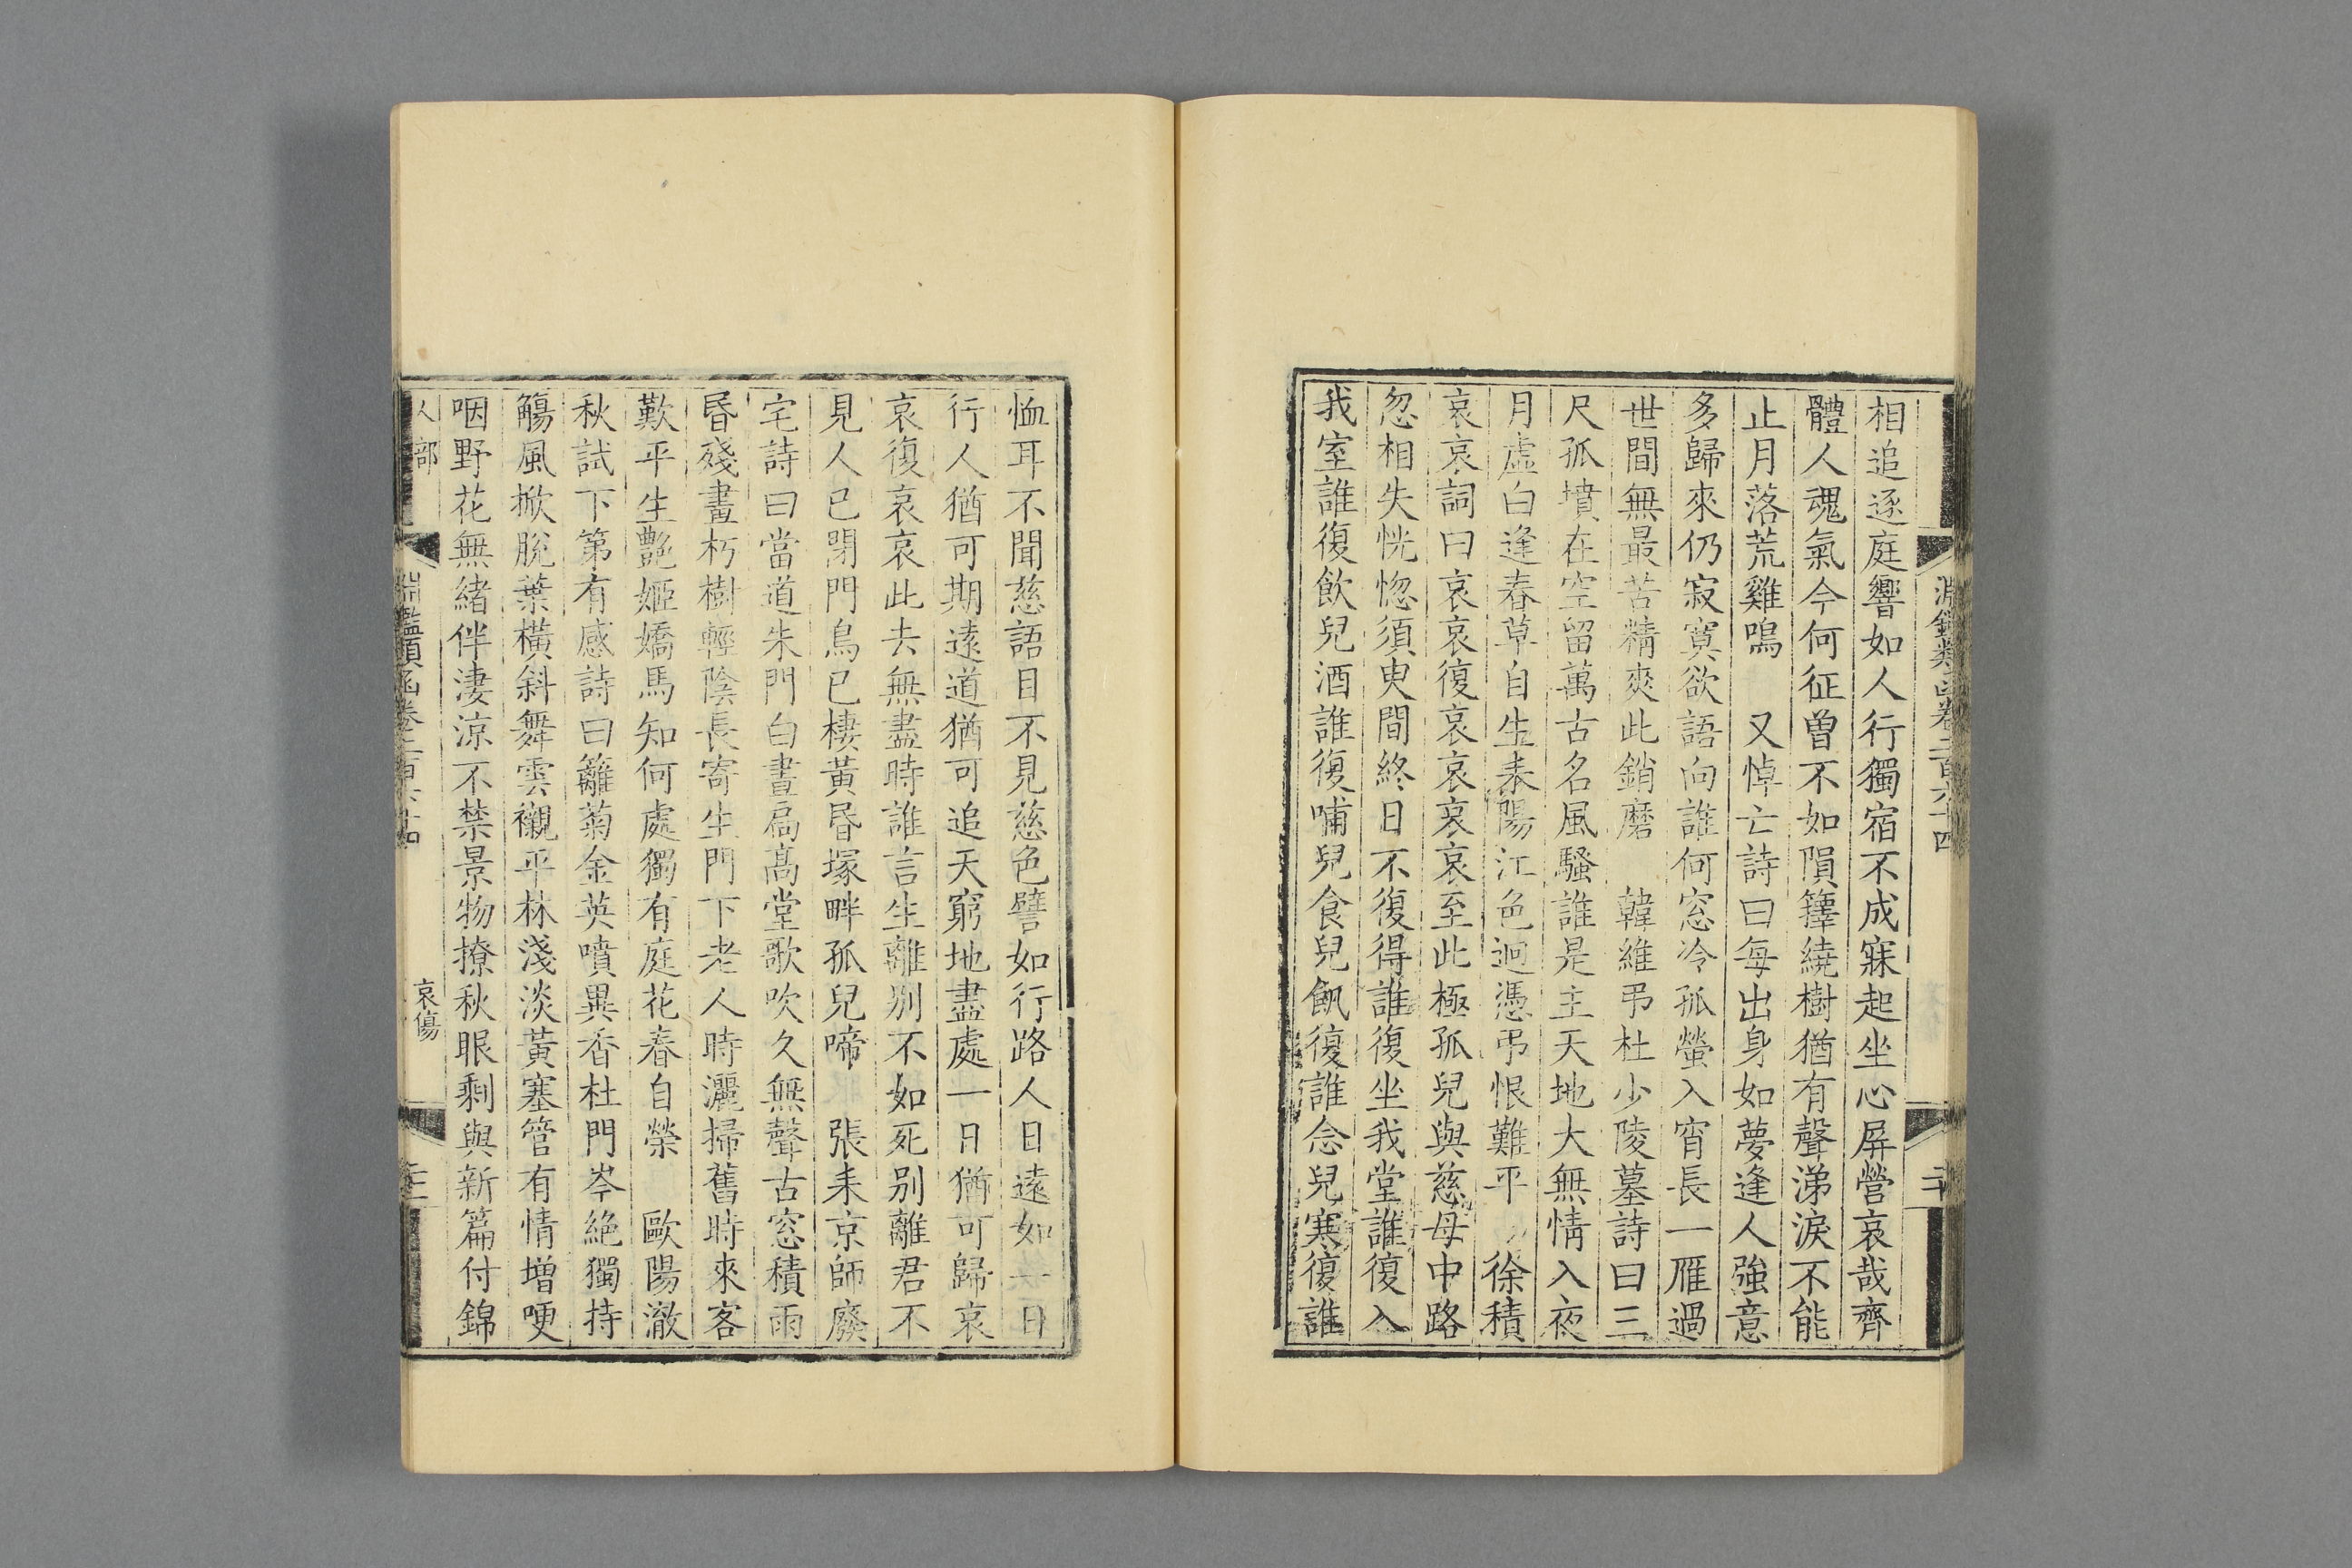 淵鑑類函卷二百六十四
相追逐庭響如人行獨宿不成寐起坐心屏營哀哉齊
體人魂氣今何征曾不如隕籜繞樹猶有聲涕淚不能
止月落荒雞鳴　又悼亡詩曰每出身如夢逢人強意
多歸來仍寂寞欲語向誰何窓冷孤螢入宵長一雁過
世間無最苦精爽此銷磨　韓維弔杜少陵墓詩曰三
尺孤墳在空留萬古名風騷誰是主天地大無情入夜
月虛白逢春草自生耒陽江色迥憑弔恨難平　徐積
哀哀詞曰哀哀復哀哀哀哀至此極孤兒與慈母中路
忽相失恍惚須臾間終日不復得誰復坐我堂誰復入
我室誰復飲兒酒誰復哺兒食兒飢復誰念兒寒復誰
恤耳不聞慈語目不見慈色譬如行路人日遠如一日
行人猶可期遠道猶可追天窮地盡處一日猶可歸哀
哀復哀哀此去無盡時誰言生離別不如死別離君不
見人已閉門鳥已棲黃昏塚畔孤兒啼　張耒京師廢
宅詩曰當道朱門白晝扃高堂歌吹久無聲古窓積雨
昏殘畫朽樹輕陰長寄生門下老人時灑掃舊時來客
歎平生艷姬嬌馬知何處獨有庭花春自榮　歐陽澈
秋試下第有感詩曰籬菊金英噴異香杜門岑絶獨持
觴風掀脫葉橫斜舞雲襯平林淺淡黃塞管有情增哽
咽野花無緒伴淒涼不禁景物撩秋眼剩與新篇付錦
人部
淵鑑類函卷二百六十四
哀傷